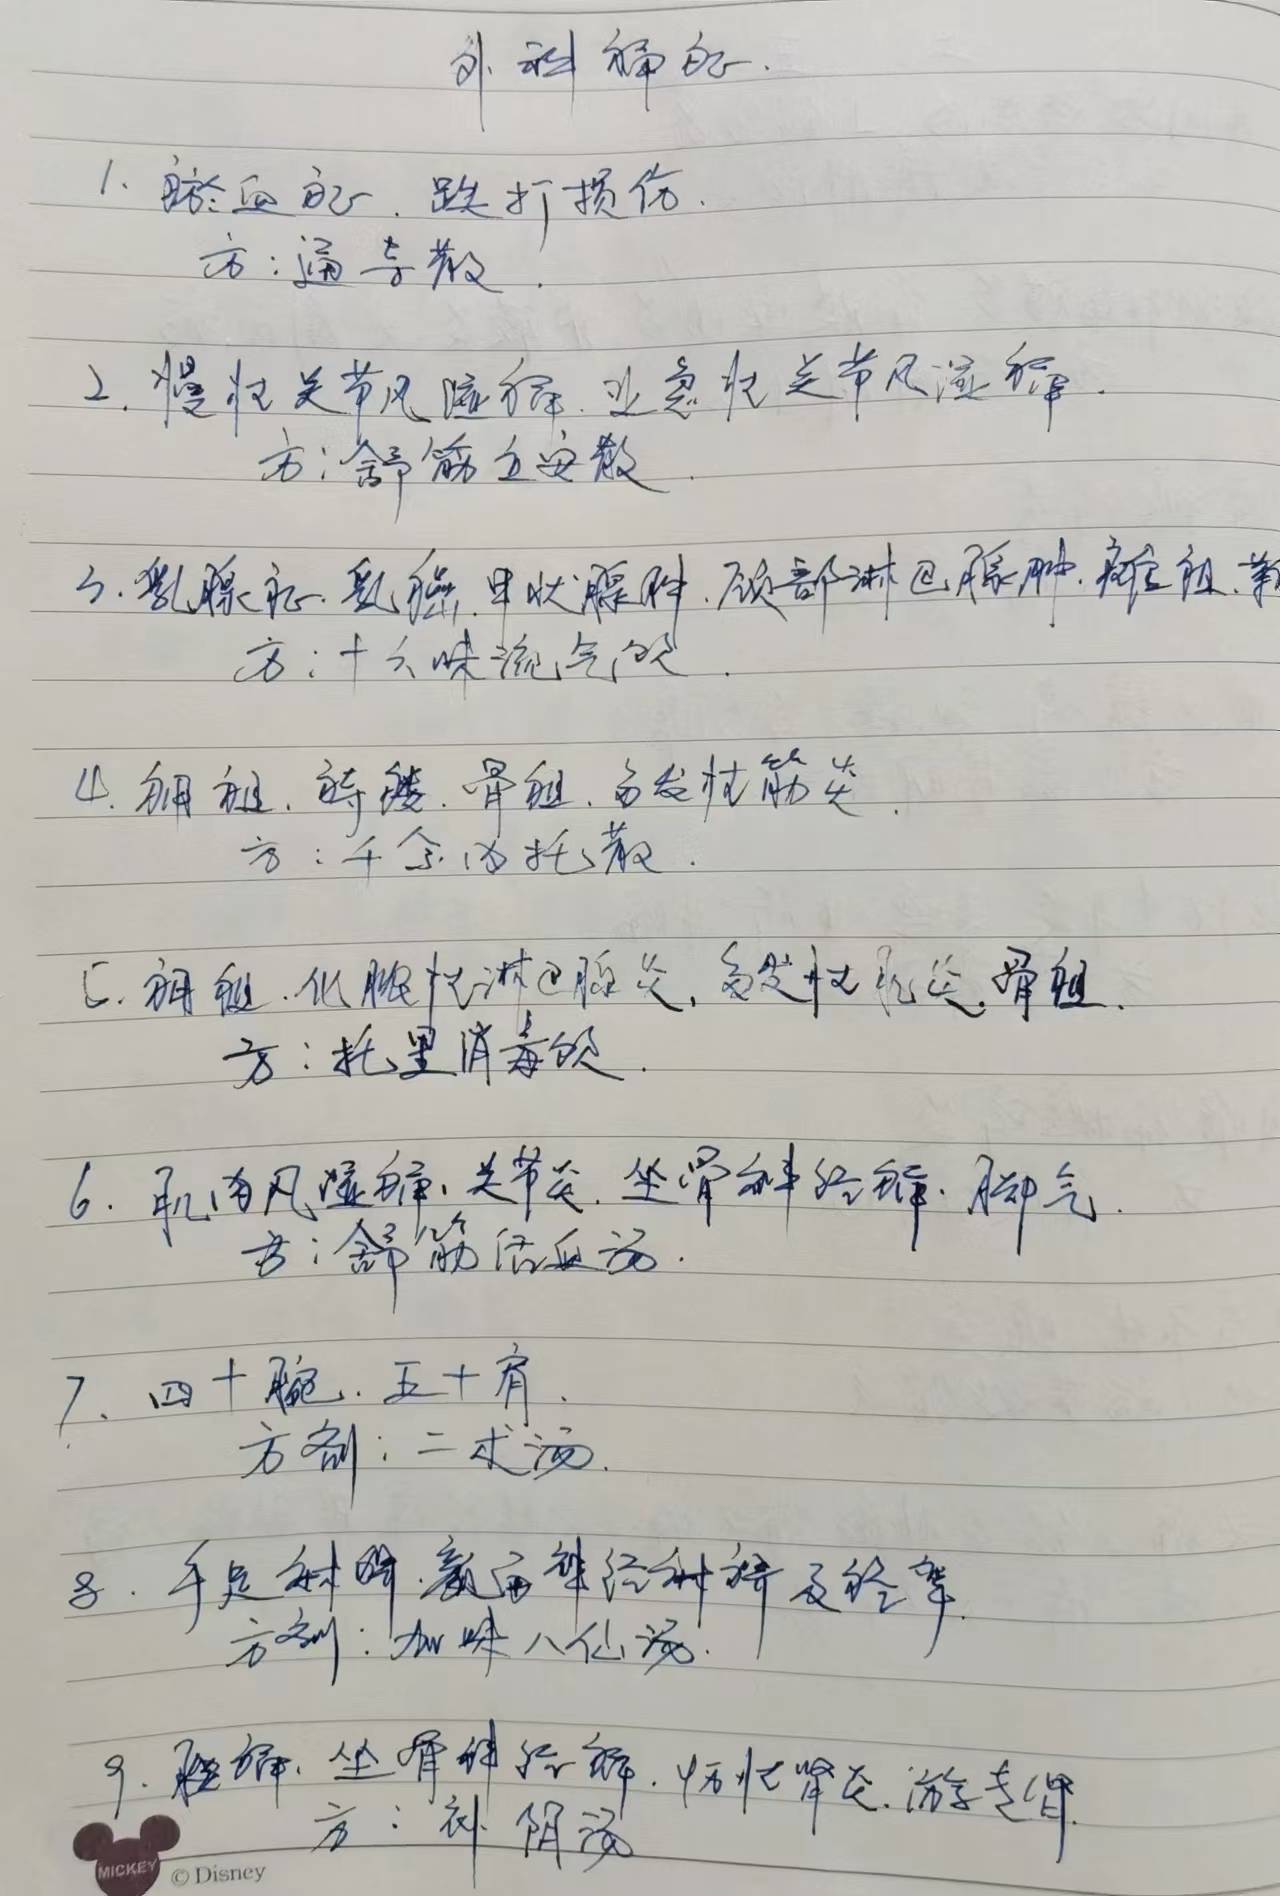 外科痛症.
1. 瘀血症. 跌打损伤.
方:通导散.
2. 慢性关节风湿痛. 亚急性关节风湿痛.
方:舒筋立安散.
3. 乳腺症. 乳癌. 甲状腺肿. 颈部淋巴腺肿. 瘫疽.
方:十六味流气饮.
4. 痈疽. 痔瘘. 骨疽. 多发性筋炎.
方:千金内托散.
5. 痈疽. 化脓性淋巴腺炎. 多发性肌炎. 骨疽.
方:托里消毒饮.
6. 肌肉风湿痛. 关节炎. 坐骨神经痛. 脚气.
方:舒筋活血汤.
7. 四十腕. 五十肩.
方剂:二术汤.
8. 手足麻痹. 颜面神经麻痹及痉挛.
方剂:加味八仙汤.
9. 腰痛. 坐骨神经痛. 慢性肾炎. 游走肾.
方:补阴汤
MICKEY © Disney